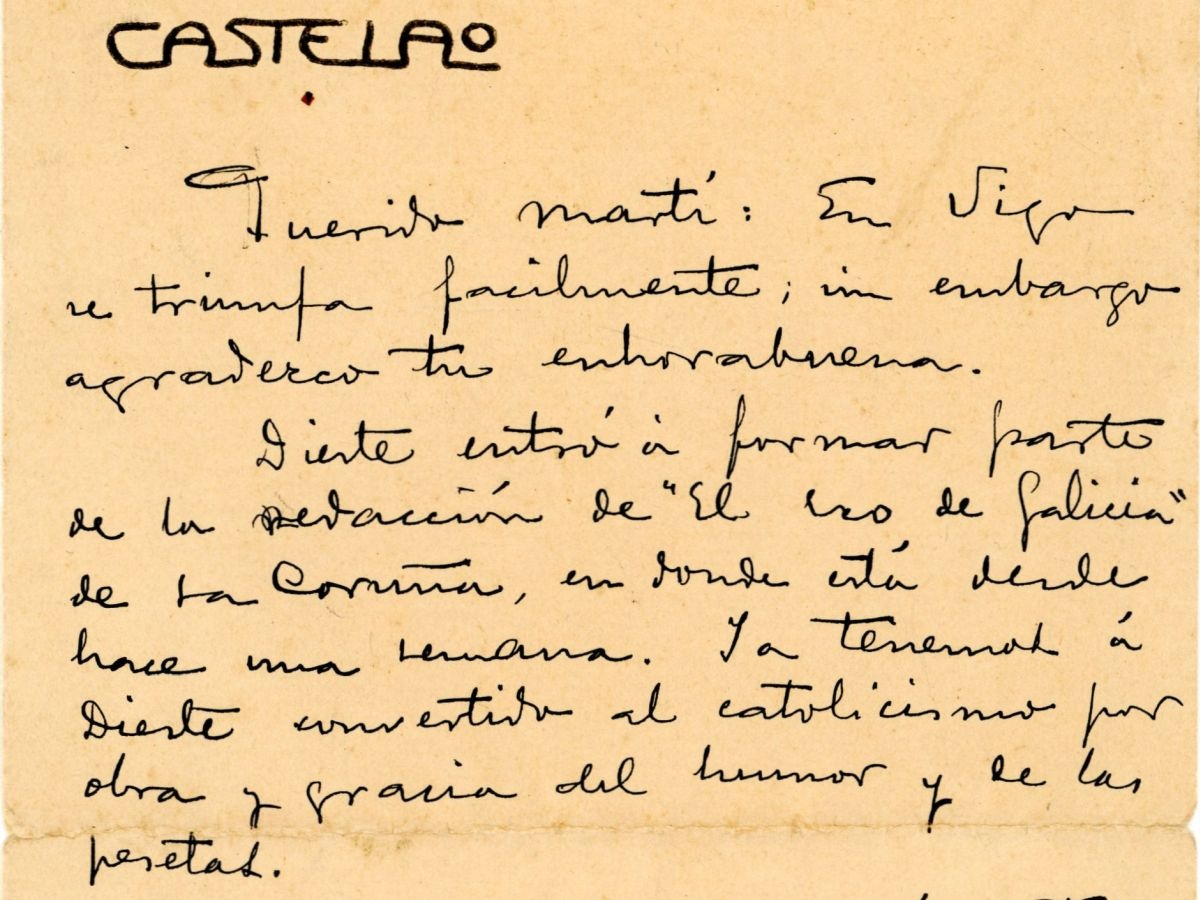 CASTELAO
Querido Martí: En Vigo
se triunfa facilmente; sin embargo
agradezco tu enhorabuena.
Dieste entró á formar parte
de la redacción de "El eco de Galicia"
de La Coruña, en donde está desde
hace una semana. Ya tenemos á
Dieste convertido al catolicismo por
obra y gracia del humor y de las
pesetas.